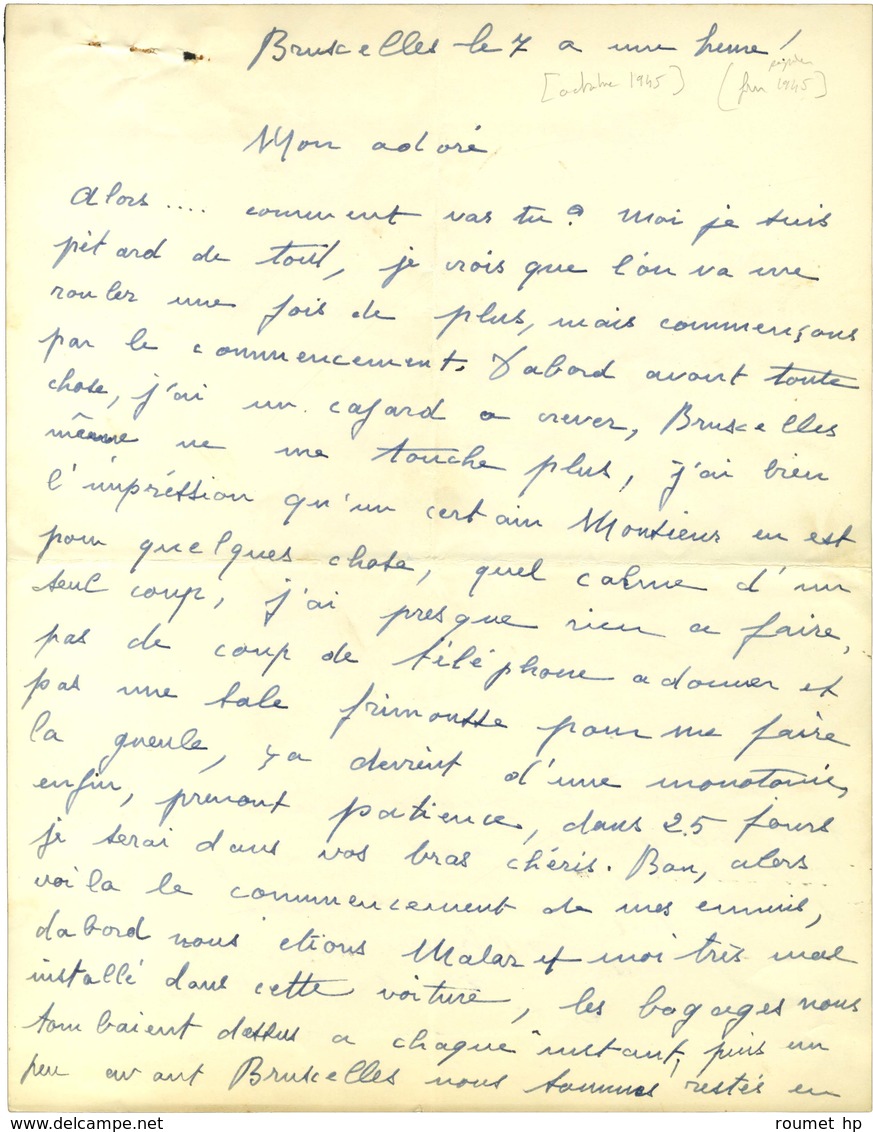 Bruxelles le 7 a une heure!
[octobre 1945] ( 1945)
Mon adoré
Alors .... comment vas tu? Moi je suis
pétard de tout, je crois que l'on va me
rouler une fois de plus, mais commençons
par le commencement. D'abord avant toute
chose, j'ai un cafard a crever, Bruxelles
même ne me touche plus, j'ai bien
l'impréssion qu'un certain Monsieur en est
pour quelques chose, quel calme d'un
seul coup, j'ai presque rien a faire,
pas de coup de téléphone a donner et
pas une sale frimousse pour me faire
la gueule, ça devient d'une monotonie,
enfin, prenont patience, dans 25 jours
je serai dans vos bras chéris. Bon, alors
voila le commencement de mes ennuis,
dabord nous étions Malar et moi très mal
installé dans cette voiture, les bagages nous
tombaient dessus a chaque instant, puis un
peu avant Bruxelles nous sommes restés en
roumet hp